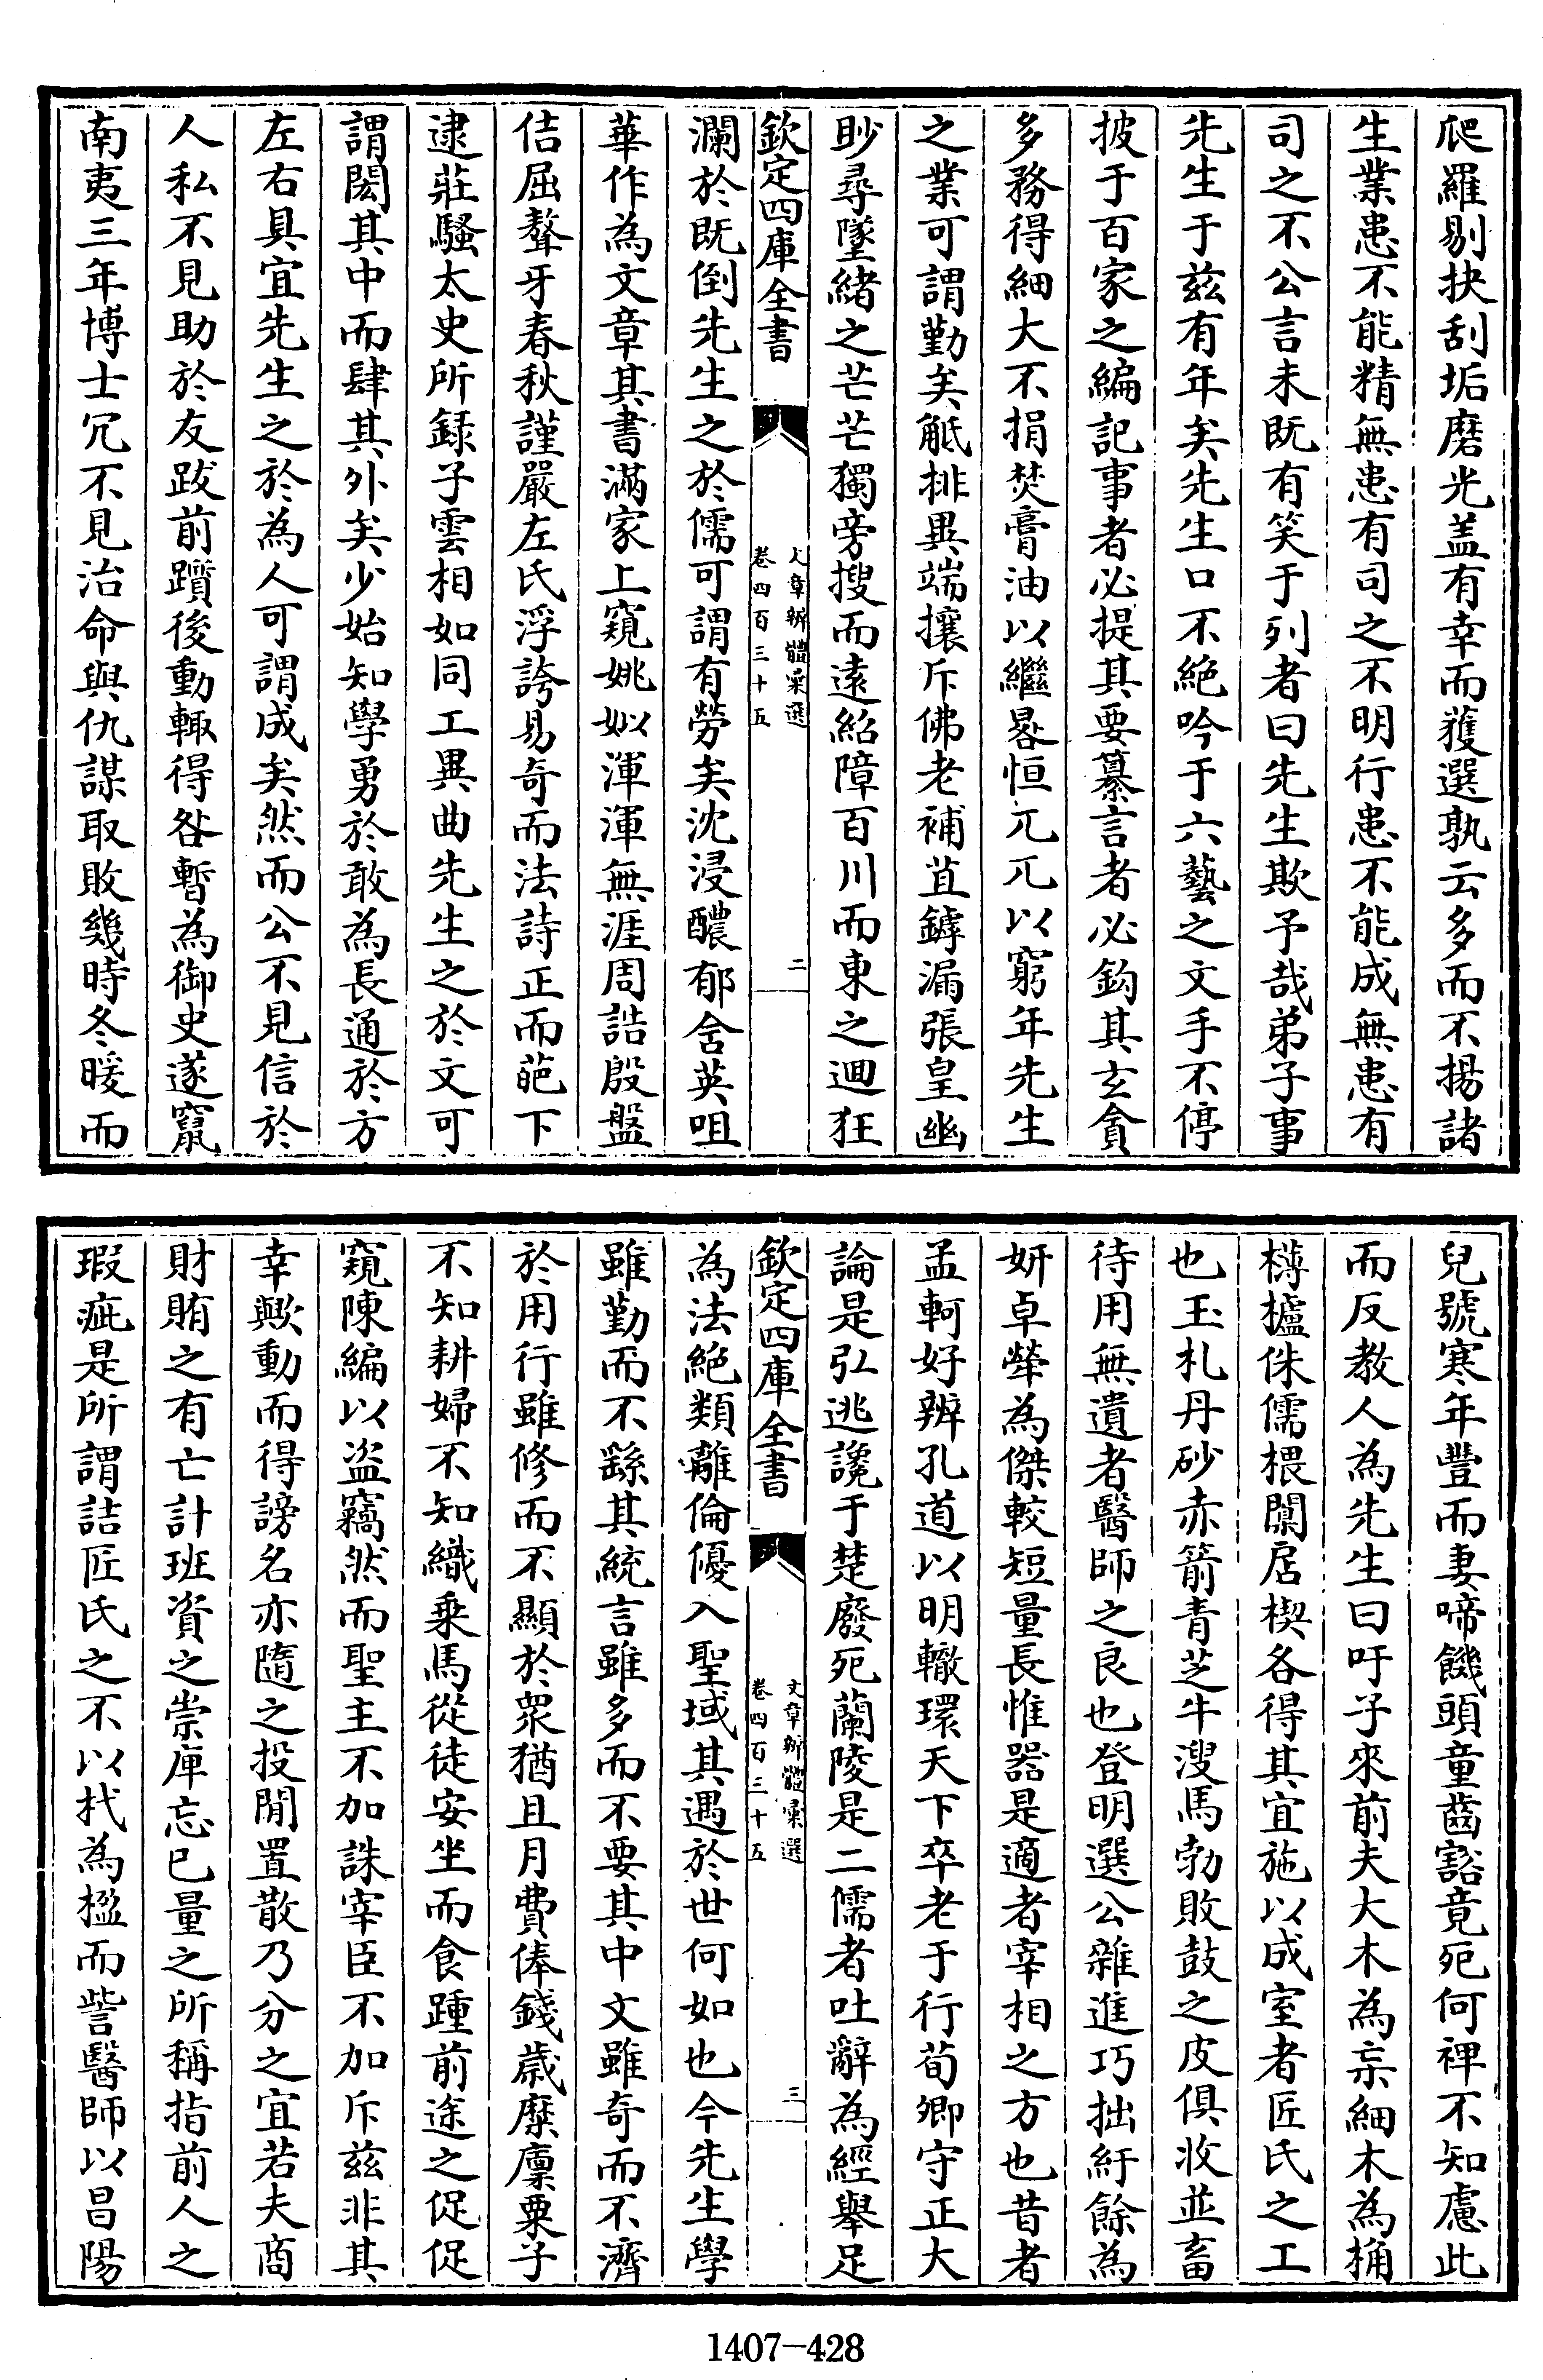 爬羅剔抉刮垢磨光盖有幸而獲選孰云多而不揚諸
生業患不能精無患有司之不明行患不能成無患有
司之不公言未既有笑于列者曰先生欺予哉弟子事
先生于兹有年矣先生口不絶吟于六藝之文手不停
披于百家之編記事者必提其要纂言者必鈎其玄貪
多務得細大不捐焚膏油以繼晷恒兀兀以窮年先生
之業可謂勤矣觝排異端攘斥佛老補苴鏬漏張皇幽
眇尋墜緒之芒芒獨旁搜而遠紹障百川而東之迴狂
欽定四庫全書
文章辨體彚選
卷四百三十五
二
瀾於既倒先生之於儒可謂有勞矣沈浸醲郁含英咀
華作為文章其書滿家上窺姚姒渾渾無涯周誥殷盤
佶屈聱牙春秋謹嚴左氏浮誇易奇而法詩正而葩下
逮莊騷太史所録子雲相如同工異曲先生之於文可
謂閎其中而肆其外矣少始知學勇於敢為長通於方
左右具宜先生之於為人可謂成矣然而公不見信於
人私不見助於友跋前躓後動輒得咎暫為御史遂竄
南夷三年博士冗不見治命與仇謀取敗幾時冬暖而
兒號寒年豐而妻啼饑頭童齒豁竟死何裨不知慮此
而反教人為先生曰吁子來前夫大木為杗細木為桷
欂櫨侏儒椳闑扂楔各得其宜施以成室者匠氏之工
也玉札丹砂赤箭青芝牛溲馬勃敗鼓之皮俱收並畜
待用無遺者醫師之良也登明選公雜進巧拙紆餘為
妍卓犖為傑較短量長惟器是適者宰相之方也昔者
孟軻好辨孔道以明轍環天下卒老于行荀卿守正大
論是弘逃讒于楚廢死蘭陵是二儒者吐辭為經舉足
欽定四庫全書
文章辨體彚選
卷四百三十五
三
為法絶類離倫優入聖域其遇於世何如也今先生學
雖勤而不繇其統言雖多而不要其中文雖奇而不濟
於用行雖修而不顯於衆猶且月費俸錢歲糜廩粟子
不知耕婦不知織乘馬從徒安坐而食踵前途之促促
窺陳編以盜竊然而聖主不加誅宰臣不加斥兹非其
幸歟動而得謗名亦隨之投閒置散乃分之宜若夫商
財賄之有亡計班資之崇庳忘已量之所稱指前人之
瑕疵是所謂詰匠氏之不以杙為楹而訾醫師以昌陽
1407-428